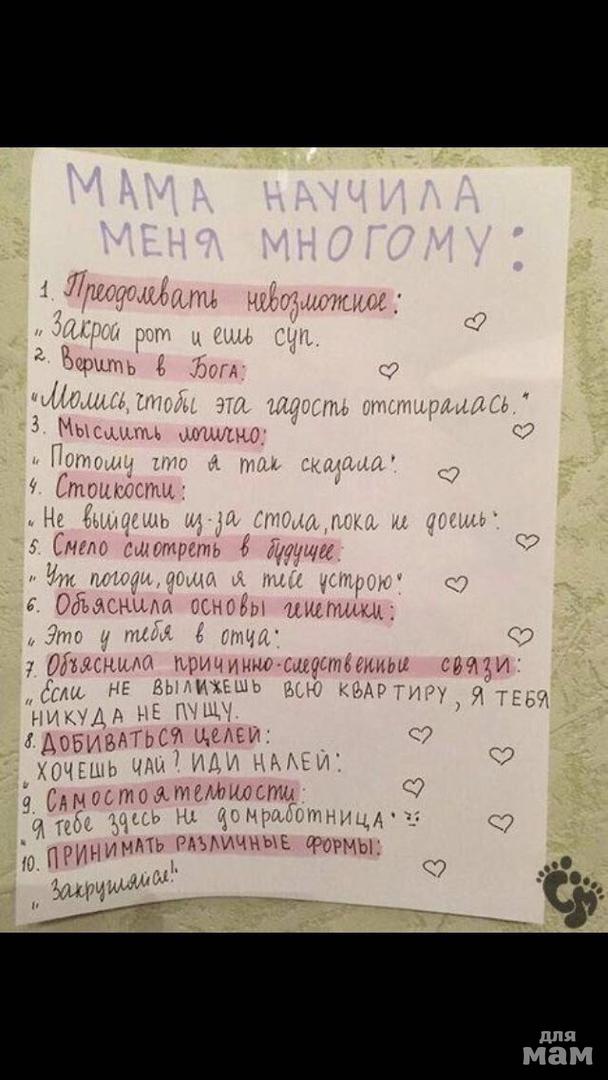 МАМА НАУЧИЛА
МЕНЯ МНОГОМУ:
1. Преодолевать невозможное:
„ Закрой рот и ешь суп.
2. Верить в Бога:
"Молись, чтобы эта гадость отстиралась."
3. Мыслить логично:
„ Потому что я так сказала".
4. Стойкости:
„ Не выйдешь из-за стола, пока не доешь".
5. Смело смотреть в будущее:
„ Уж погоди, дома я тебе устрою"
6. Объяснила основы генетики:
„ Это у тебя в отца".
7. Объяснила причинно-следственные связи:
„ Если НЕ ВЫЛИЖЕШЬ ВСЮ КВАРТИРУ, Я ТЕБЯ
НИКУДА НЕ ПУЩУ.
8. ДОБИВАТЬСЯ ЦЕЛЕЙ:
„ ХОЧЕШЬ ЧАЙ? ИДИ НАЛЕЙ".
9. САМОСТОЯТЕЛЬНОСТИ:
"Я тебе здесь не домработница"
10. ПРИНИМАТЬ РАЗЛИЧНЫЕ ФОРМЫ:
„ Закругляйся!"
СМ
для
мам